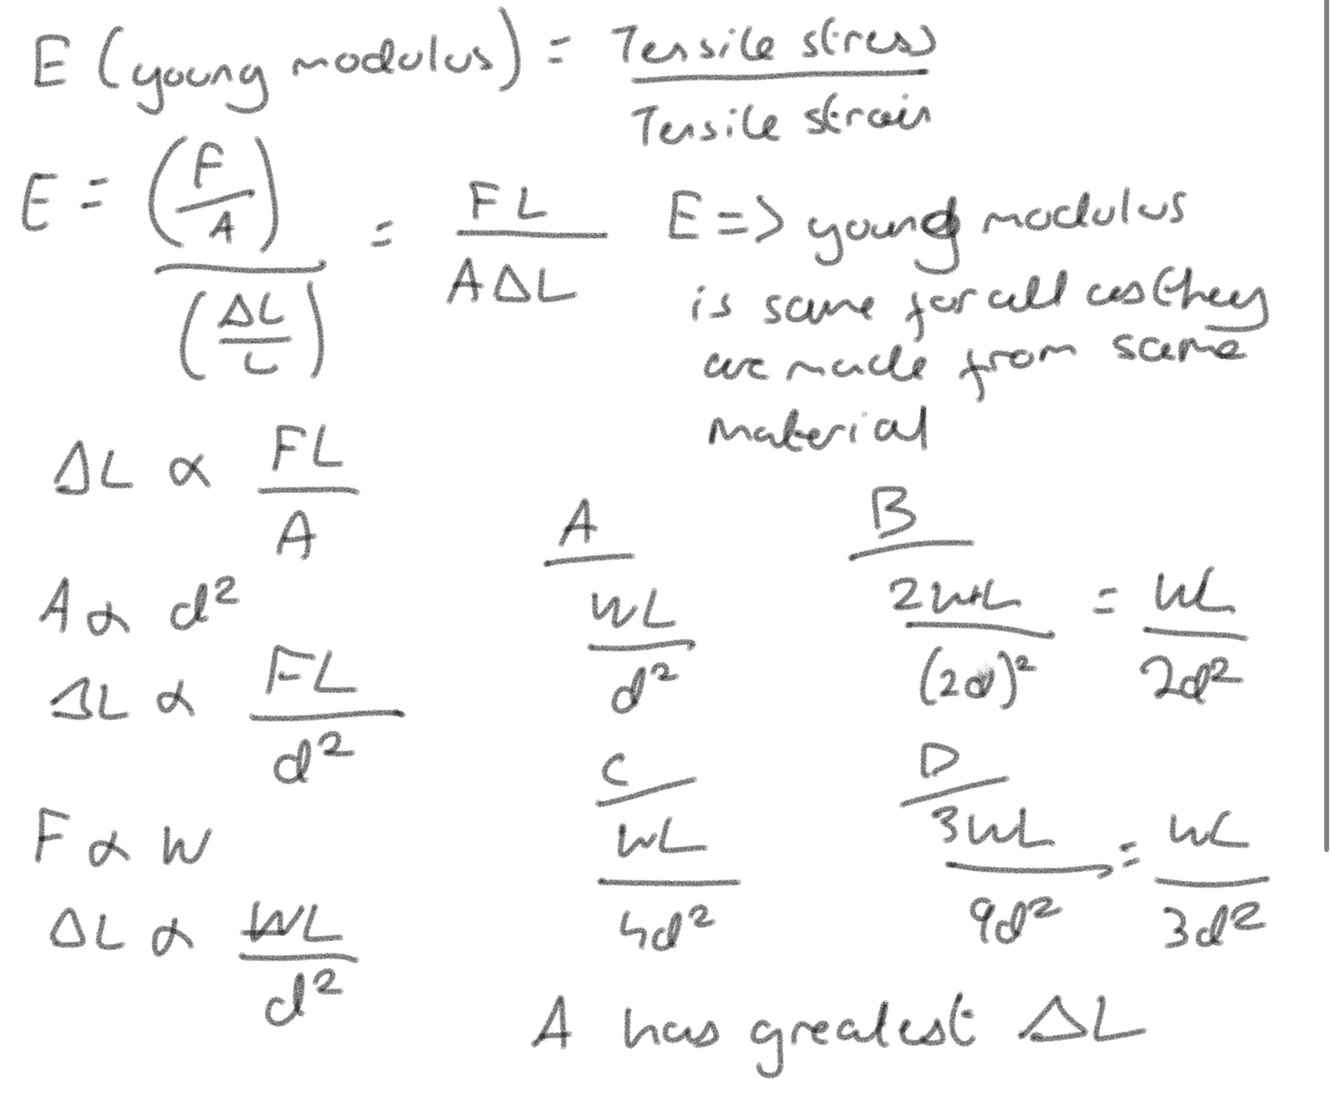 E (young modulus) = Tensile stress / Tensile strain
E = (F/A) / (ΔL/L) = FL / AΔL
E => young modulus
is same for all as they
are made from same
material
ΔL ∝ FL / A
A ∝ d²
ΔL ∝ FL / d²
F ∝ W
ΔL ∝ WL / d²
A
WL / d²
B
2WL / (2d)² = WL / 2d²
C
WL / 4d²
D
3WL / 9d² = WL / 3d²
A has greatest ΔL